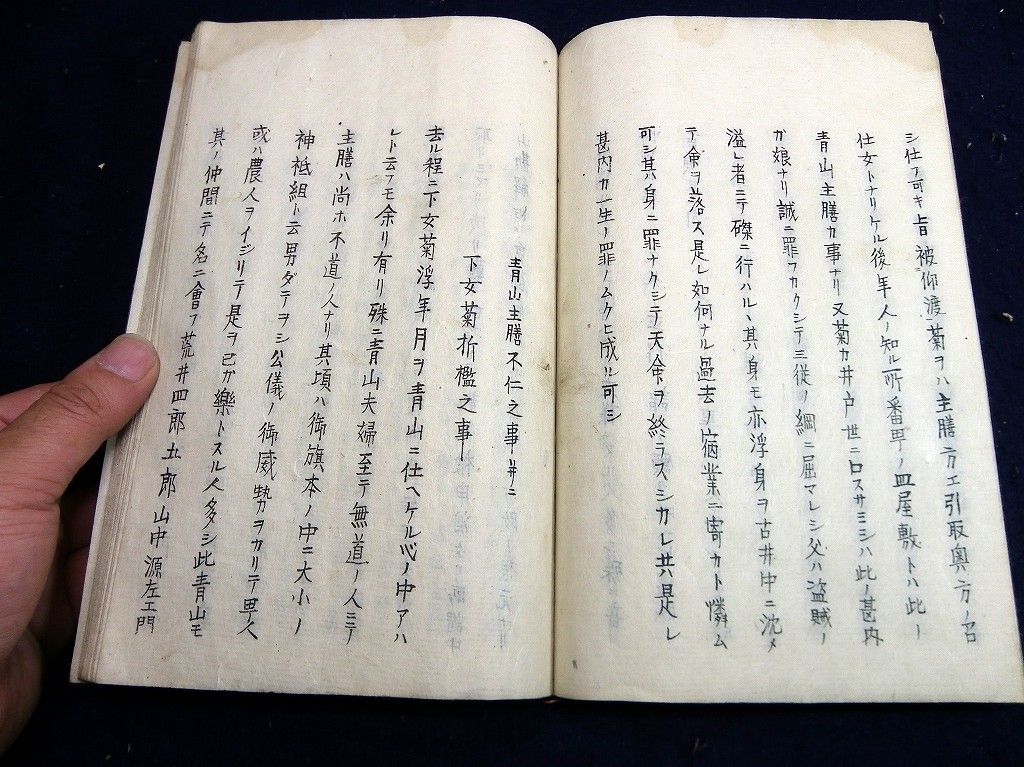 シ仕フ可キ旨被仰渡菊ヲハ主膳方エ引取奥方ノ召
仕女トナリケル後年人ノ知ル所番町ノ皿屋敷トハ此ノ
青山主膳カ事ナリ又菊カ井戸ノ世ニ口スサミシハ此ノ甚内
ガ娘ナリ誠ニ罪フカクシテ三従ノ綱ニ屈マレシ父ハ盗賊ノ
溢レ者ニテ磔ニ行ハル丶其身モ亦浮身ヲ古井中ニ沈メ
テ命ヲ落ス是レ如何ナル過去ノ宿業ニ寄カト憐ム
可シ其身ニ罪ナクシテ天命ヲ終ラスシカレ共是レ
甚内カ一生ノ罪ノムクヒ成ル可シ
青山主膳不仁之事并ニ
下女菊折檻之事
去ル程ニ下女菊浮年月ヲ青山ニ仕ヘケル心ノ中アハ
レト云フモ余リ有リ殊ニ青山夫婦至テ無道ノ人ニテ
主膳ハ尚ホ不道ノ人ナリ其頃ハ御旗本ノ中ニ大小ノ
神祇組ト云男ダテヲシ公儀ノ御威勢ヲカリテ町人
或ハ農人ヲイジリテ是ヲ己ガ樂トスル人多シ此青山モ
其ノ仲間ニテ名ニ會フ荒井四郎五郎山中源左エ門